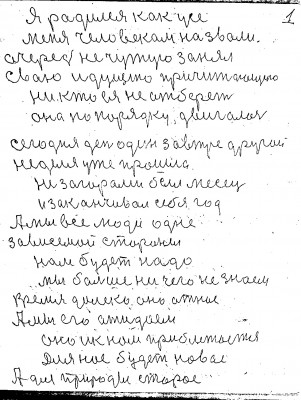 Я родился как все
1
меня человеком назвали.
очередь не чужую занял
Сваю идущею причитающею
ни кто ея не отберет
она по порядку двигалась
сегодня ден один завтре другой
неделя уже прошла
и заканчивал себя год
А мы все люди одне
зависемой стороны
нам будет надо
мы больше ни чего не знаем
время далеко оно от нас
А мы его ожидаем
оно к нам приблежается
Для нас будет новае
А для природы старое